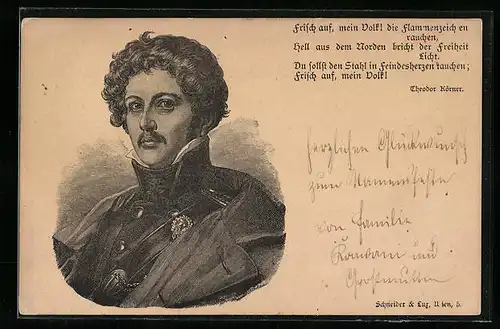 Frisch auf, mein Volk! die Flammenzeichen
rauchen,
Hell aus dem Norden bricht der Freiheit
Licht.
Du sollst den Stahl in Feindesherzen tauchen;
Frisch auf, mein Volk!
Theodor Körner.
herzlichen Glückwunsch
zum Namensfeste
von Familie
und
Großmutter
Schneider & Lux, Wien, 5.